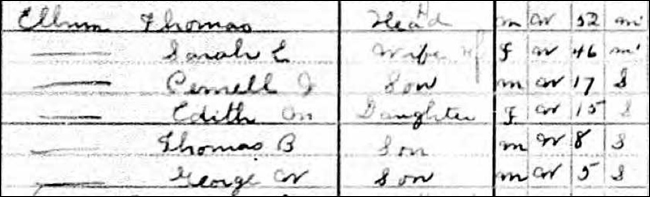 Ellum Thomas Head m W 52 m
Sarah E Wife H f W 46 m
Pernell J Son m W 17 S
Edith M Daughter f W 15 S
Thomas B Son m W 8 S
George W Son m W 5 S